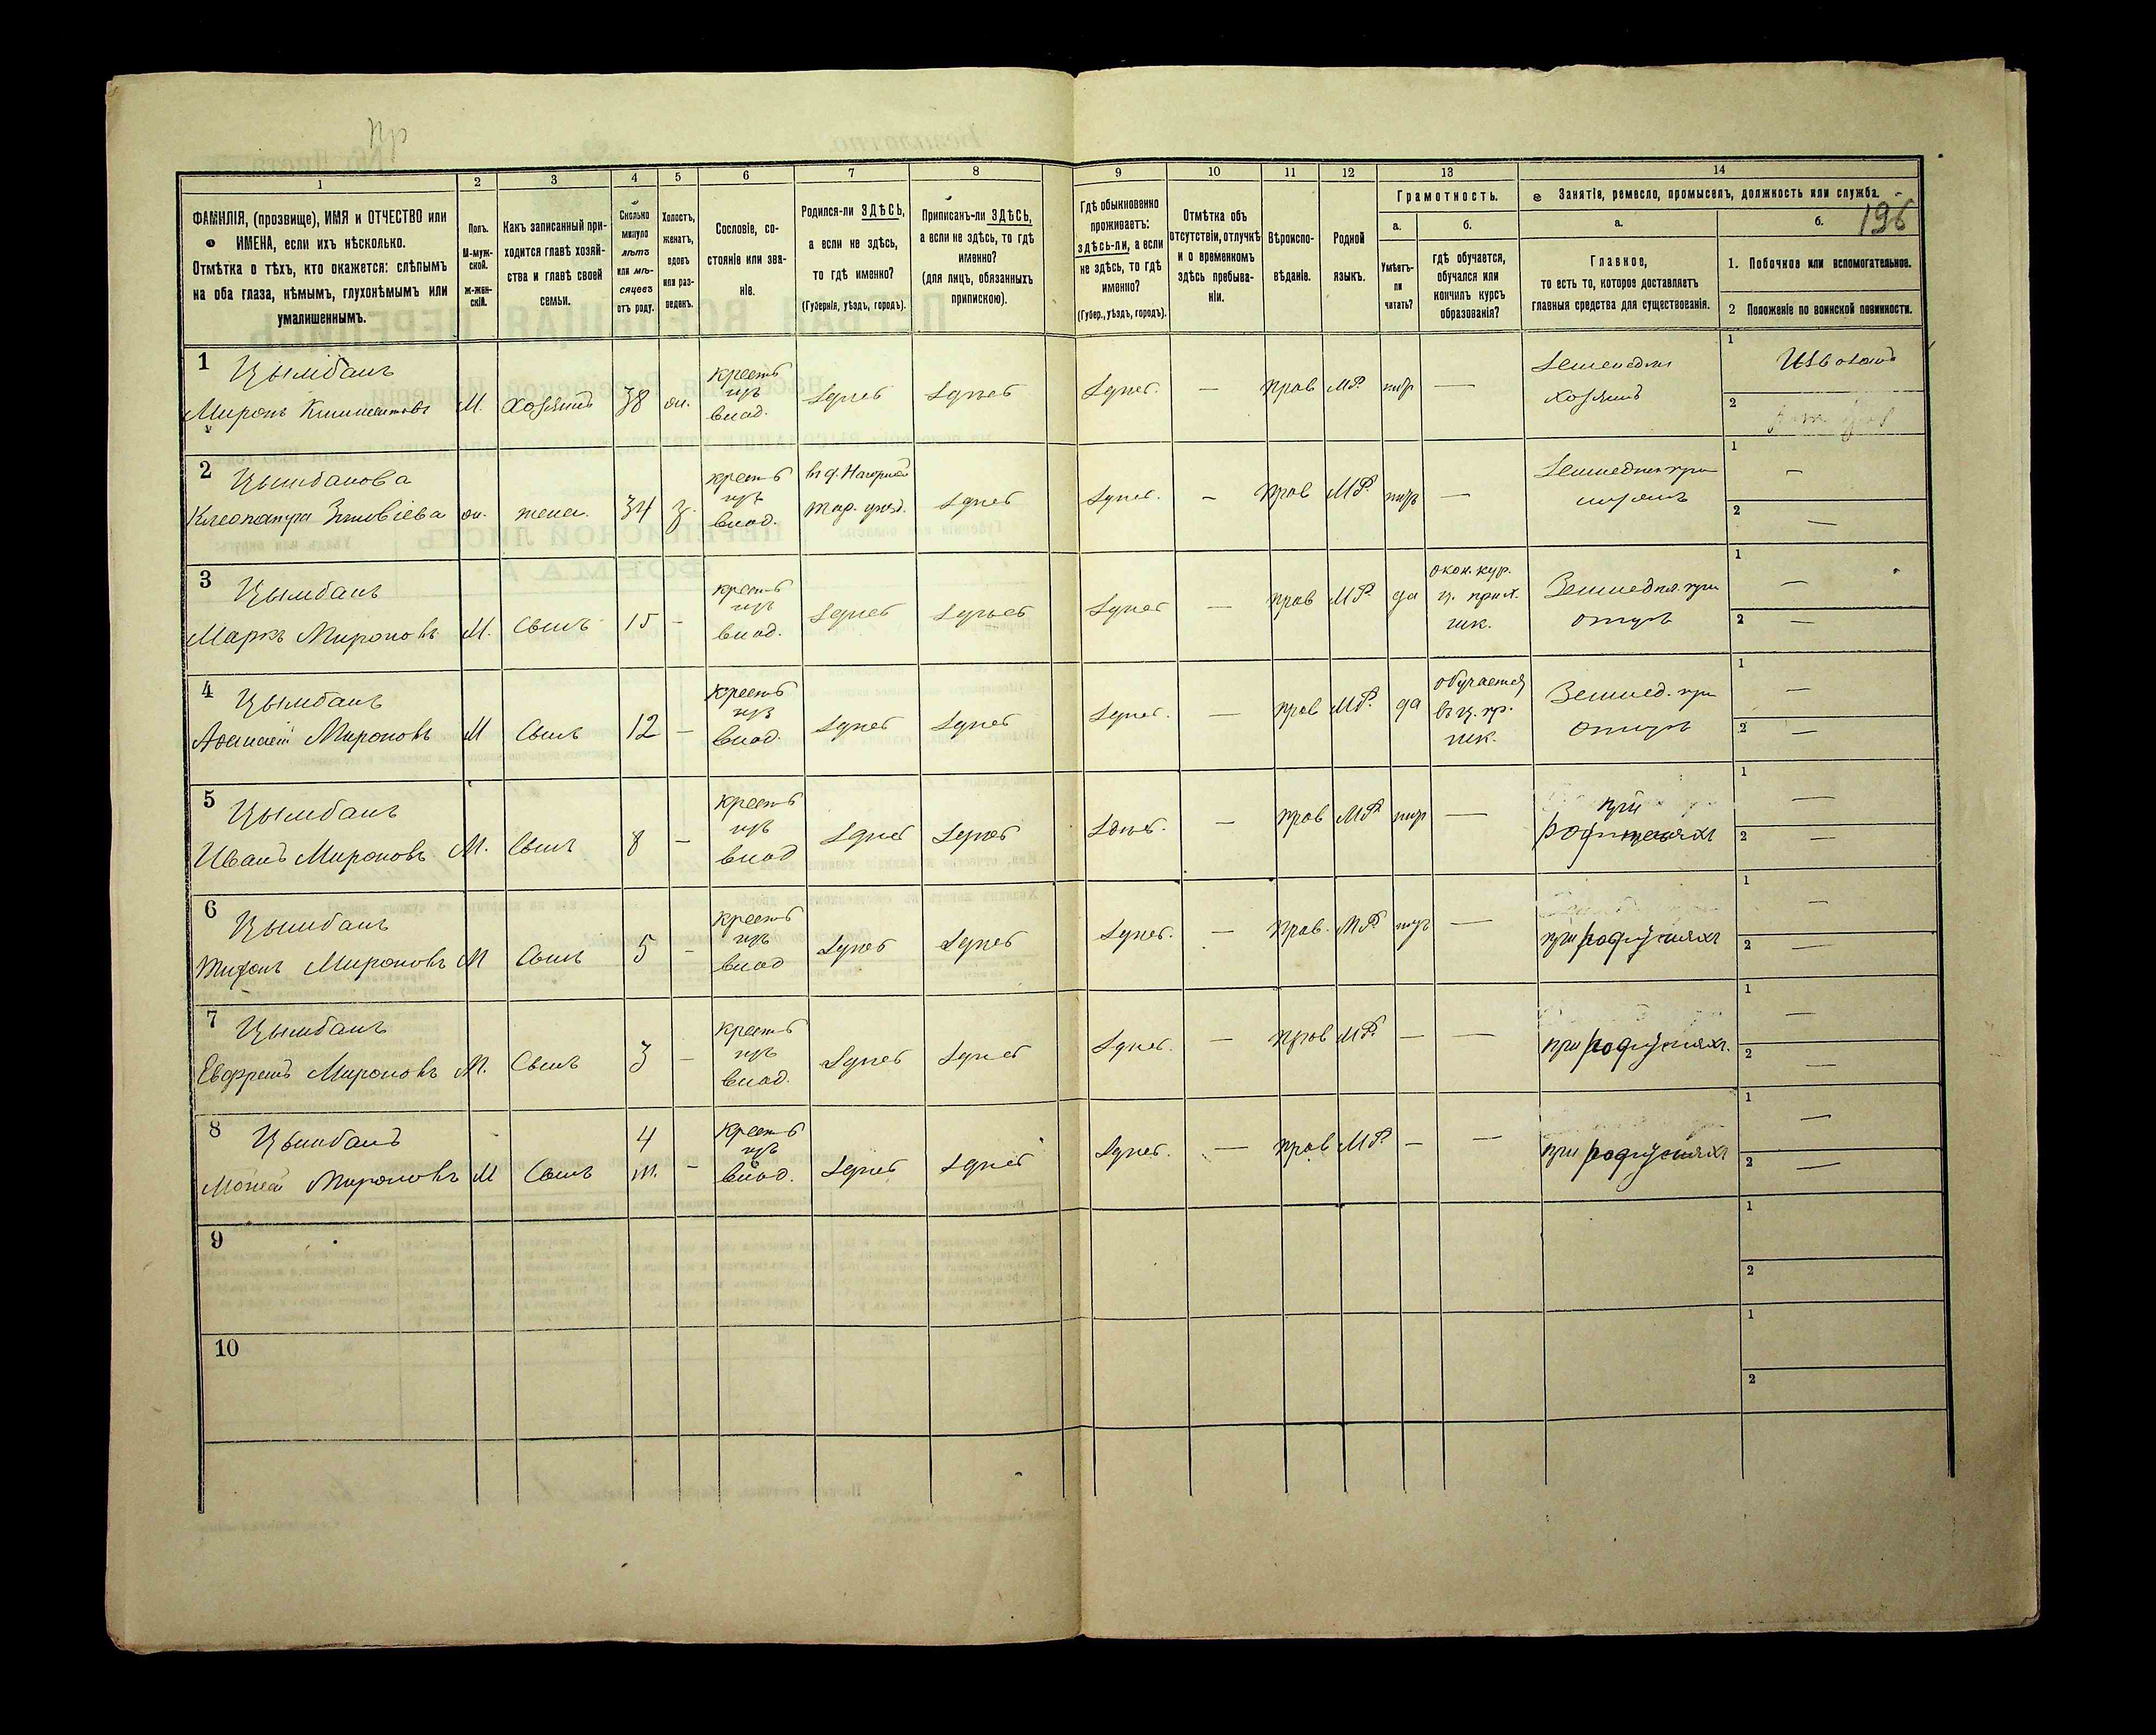 пр
1 2 3 4 5 6 7 8 9 10 11 12 13 14
ФАМИЛІЯ, (прозвище), ИМЯ и ОТЧЕСТВО или
ИМЕНА, если ихъ нѣсколько.
Отмѣтка о тѣхъ, кто окажется: слѣпымъ
на оба глаза, нѣмымъ, глухонѣмымъ или
умалишеннымъ.
Полъ.
М-муж-
ской.
Ж-жен-
скій.
Какъ записанный при-
ходится главѣ хозяй-
ства и главѣ своей
семьи.
Сколько
минуло
лѣтъ
или мѣ-
сяцевъ
отъ роду.
Холостъ,
женатъ,
вдовъ
или раз-
веденъ.
Сословіе, со-
стояніе или зва-
ніе.
Родился-ли ЗДѢСЬ,
а если не здѣсь,
то гдѣ именно?
(Губернія, уѣздъ, городъ).
Приписанъ-ли ЗДѢСЬ,
а если не здѣсь, то гдѣ
именно?
(для лицъ, обязанныхъ
припискою).
Гдѣ обыкновенно
проживаетъ:
здѣсь-ли, а если
не здѣсь, то гдѣ
именно?
(Губер., уѣздъ, городъ).
Отмѣтка объ
отсутствіи, отлучкѣ
и о временномъ
здѣсь пребыва-
ніи.
Вѣроиспо-
вѣданіе.
Родной
языкъ.
Грамотность.
а.
Умѣетъ-
ли
читать?
б.
гдѣ обучается,
обучался или
кончилъ курсъ
образованія?
Занятія, ремесло, промыселъ, должность или служба.
196
а.
Главное,
то есть то, которое доставляетъ
главныя средства для существованія.
б.
1. Побочное или вспомогательное.
2 Положеніе по воинской повинности.
1 Цымбалъ
Миронъ Климентовъ М. хозяинъ 38 ж. крест. изъ влад. здѣсь здѣсь здѣсь. — прав МР. —
хозяинъ
1 Извозомъ
2
2 Цымбалова
Клеопатра Зиновіева ж. жена. 34 з. крест. изъ влад. здѣсь здѣсь. — прав МР. —
1 —
2 —
3 Цымбалъ
Маркъ Мироновъ М. Сынъ 15 — крест. изъ влад. здѣсь здѣсь здѣсь — прав МР. да
окон. кур.
ц. прих.
шк.
Земледѣл. при
отцѣ
1 —
2 —
4 Цымбалъ
Аѳанасій Мироновъ М Сынъ 12 — крест. изъ влад. здѣсь здѣсь здѣсь. — прав МР. да
обучается
въ ц. пр.
шк.
Землед. при
отцѣ
1 —
2 —
5 Цымбалъ
Иванъ Мироновъ М. Сынъ 8 — крест. изъ влад здѣсь здѣсь здѣсь. — прав МР —
при
родителяхъ
1 —
2 —
6 Цымбалъ
Тихонъ Мироновъ М Сынъ 5 — крест. изъ влад здѣсь здѣсь здѣсь. — Прав. МР —
при родителяхъ
1 —
2 —
7 Цымбалъ
Мироновъ М. Сынъ 3 — крест. изъ влад. здѣсь здѣсь здѣсь. — прав МР. — —
при родителяхъ.
1 —
2 —
8 Цымбалъ
Мироновъ М Сынъ 4 м. — крест. изъ влад. здѣсь здѣсь здѣсь. — прав МР. — —
при родителяхъ
1 —
2 —
9
1
2
10
1
2